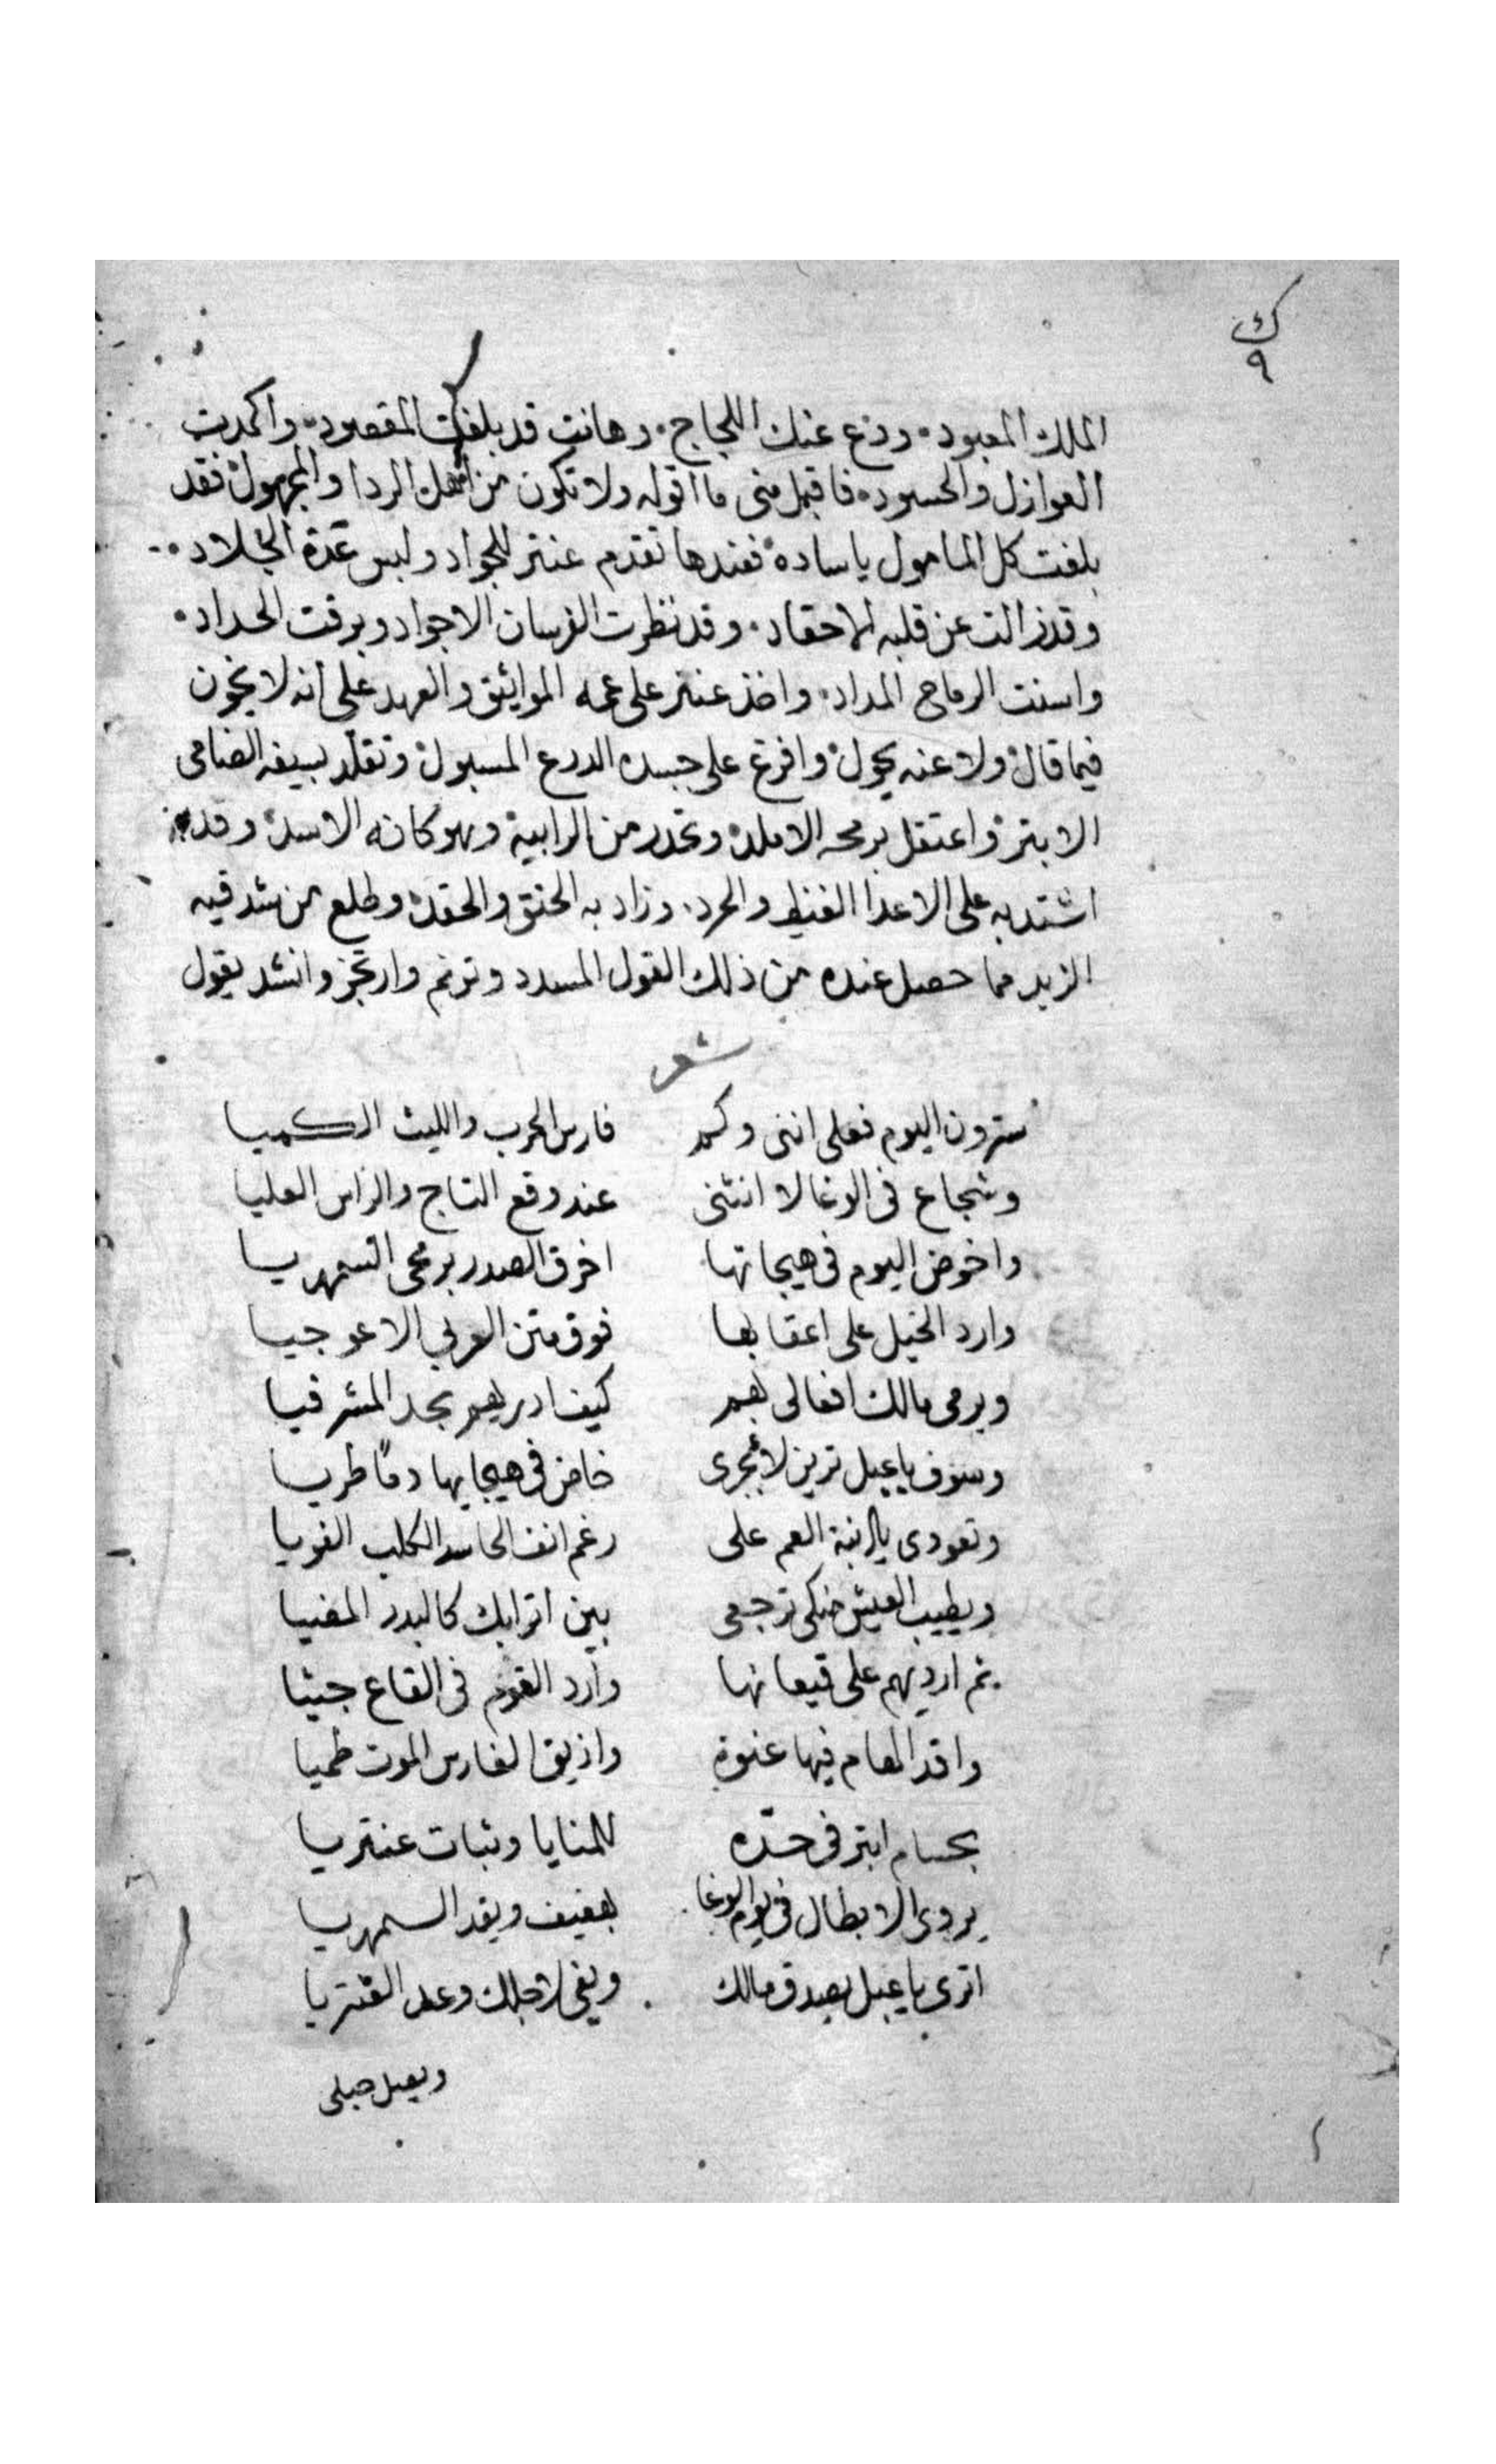 ك
٩
الملك المعبود. ودع عنك اللجاج. وها انت قد بلغت المقصود. واكمدت
العوازل والحسود. فاقبل منى ما اقوله ولا تكون من اهل الردا والمجهول فقد
بلغت كل المامول ياساده فعندها تقدم عنتر للجواد ولبس عدة الجلاد.
وقد زالت عن قلبه الاحقاد. وقد نظرت الفرسان الاجواد وبرقت الحداد.
واسنت الرماح المداد. واخذ عنتر على عمه المواثيق والعهد على انه لا يخون
فيما قال ولا عنه يحول وافرغ على جسده الدرع المسبول وتقلد بسيفه الضامى
الابتر واعتقل برمحه الاملد وتحدر من الرابية وهو كانه الاسد وقد
اشتد به على الاعدا الغيظ والحرد. وزاد به الحنق والحقد وطلع من شدقيه
الزبد مما حصل عنده من ذلك القول المسدد وترنم وارتجز وانشد يقول
شعر
سترون اليوم فعلى اننى وكم فارس الحرب والليث الكميا
وشجاع فى الوغا لا انثنى عند وقع التاج والراس العليا
واخوض اليوم فى هيجاتها اخرق الصدر برمحى السمهريا
وارد الخيل على اعقابها فوق متن العربي الاعوجيا
ويرمى مالك افعالى بهم كيف ادريهم بحد المشرفيا
وسوف ياعبل ترين لابجرى خاض فى هيجايها دمًا طريا
وتعودى يا ابنة العم على رغم انف الحاسد الكلب الغويا
ويطيب العيش منكى ترجعى بين اترابك كالبدر المضيا
ثم ارديهم على قيعانها وارد القوم فى القاع جثيا
واقد الهام فيها عنوة واذيق الفارس الموت طميا
بحسام ابتر فى حدّه للمنايا وثبات عنتريا
يردى الابطال فى يوم الوغا بعفيف ويقد السمهريا
اترى ياعبل يصدق مالك ويفى لاجلك وعد القتريا
ويصل حبلى